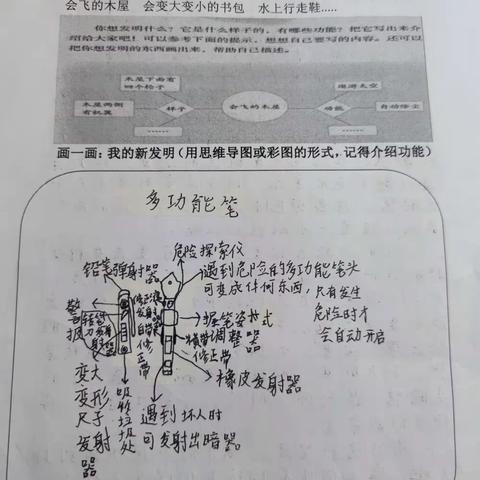 会飞的木屋 会变大变小的书包 水上行走鞋……
你想发明什么？它是什么样子的，有哪些功能？把它写出来介
绍给大家吧！可以参考下面的提示，想想自己要写的内容。还可以
把你想发明的东西画出来，帮助自己描述。
木屋下面有
四个轮子
木屋两侧
有机翼
……
样子
会飞的木屋
功能
遨游太空
自动除尘
……
画一画：我的新发明（用思维导图或彩图的形式，记得介绍功能）
多功能笔
危险探索仪
铅笔弹射器
遇到危险的多功能笔头
可变成任何东西，只有发生
危险时才
会自动开启
警报
握笔姿势式
调整器
修正带
橡皮发射器
变大
变形
尺子
发射
器
吸物垃圾处
遇到坏人时
可发射出暗器